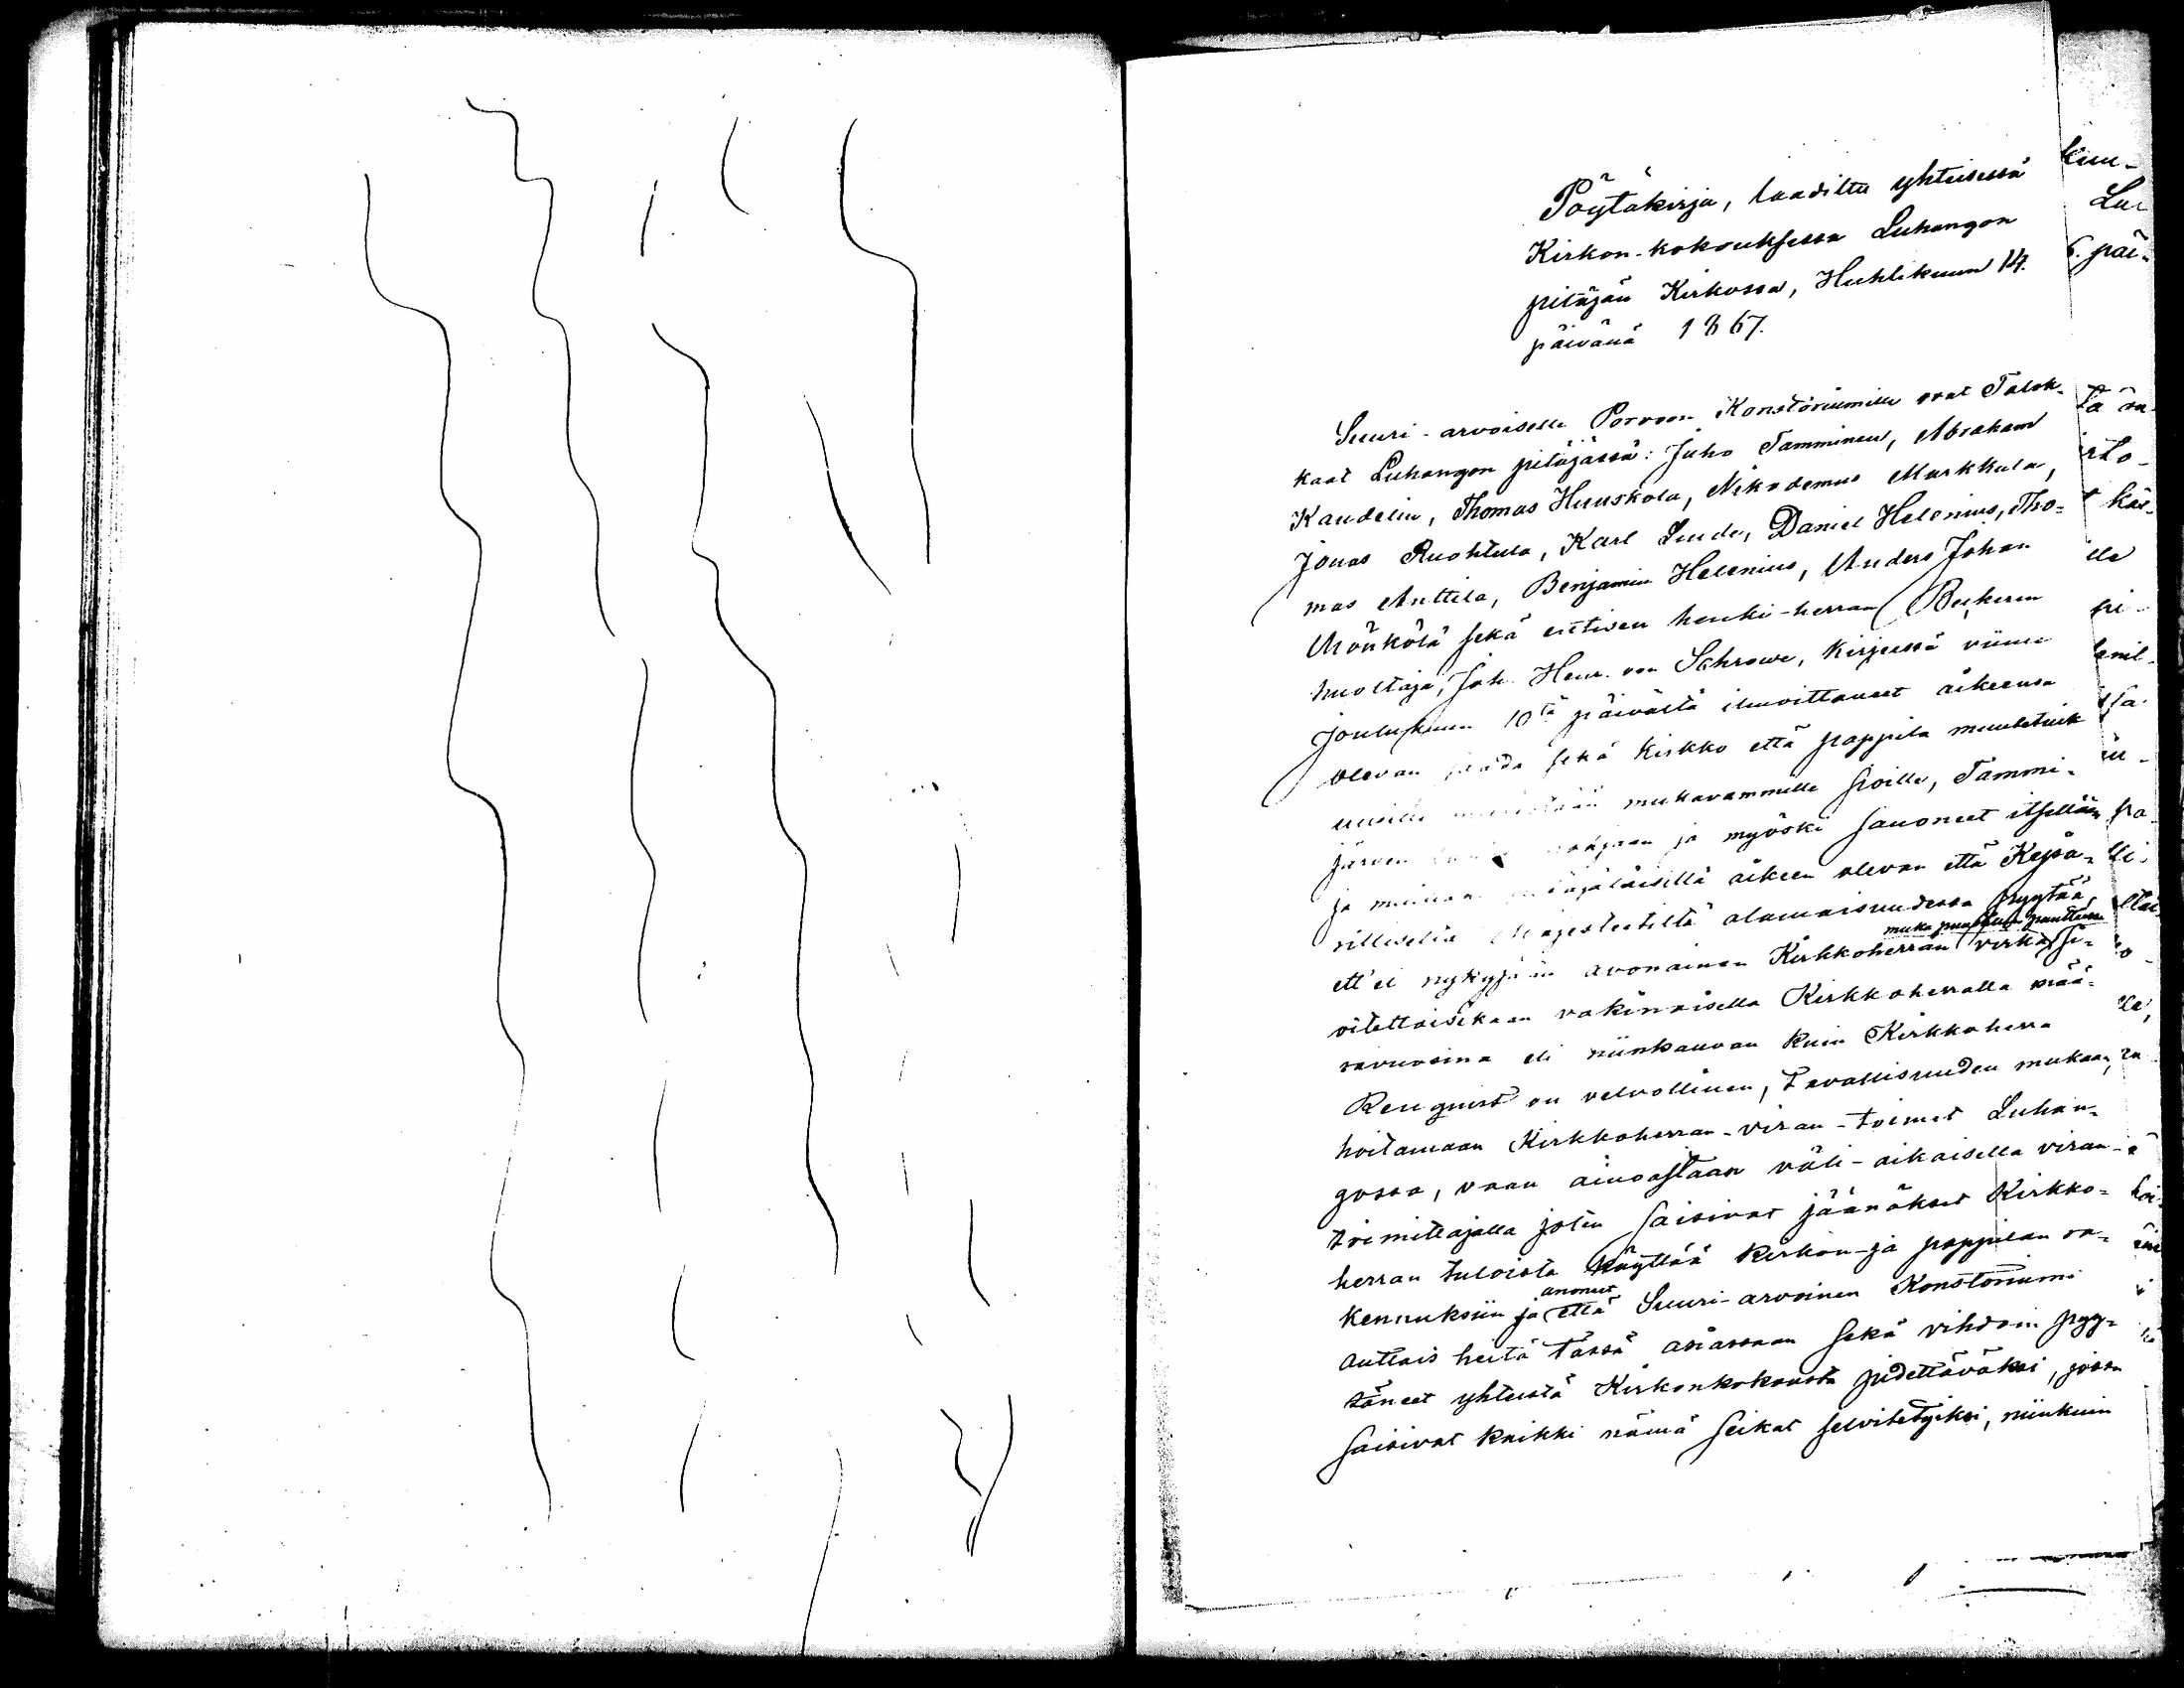 Pöytäkirja, laadittu yhteisessä
Kirkon-kokouksessa Luhangon
pitäjän Kirkossa, Huhtikuun 14.
päivänä 1867.
Suuri-arvoiselle Porvoon Konstoriumille ovat Talok-
kaat Luhangon pitäjässä: Juho Tamminen, Abraham
Kandelin, Thomas Huuskola, Nikodemus Markkula,
Jonas Ruohtula, Karl Lunde, Daniel Helenius, Tho=
mas Anttila, Benjamin Helenius, Anders Johan
Mönkölä sekä entisen henki-herran Beckerin
huoltaja, Joh. Henr. von Schrowe, kirjeessä viime
Joulukuun 10tä päivältä ilmoittaneet aikeensa
olevan saada sekä kirkko että pappila muutetuik
uusille mukavammille sioille, Tammi-
järven ja myöski sanoneet itsellään
ja muilla pitäjäläisillä aikeen olevan että Keisa-
rilliselta Majesteetilta alamaisuudessa pyytää,
ett'ei nykyjään avonainen Kirkkoherran virka si-
muka puustellin puuttuessa
oitettaisikaan vakinaisella Kirkkoherralla sää-
rävuosina eli niinkauvan kuin Kirkkoherra
Renquist on velvollinen, tavallisuuden mukaan,
hoitamaan Kirkkoherran-viran-toimet Luhan-
gossa, vaan ainoastaan väli-aikaisella viran-
toimittajalla joten saisivat jäännökset Kirkko-
herran tuloista käyttää kirkon- ja pappilan ra-
kennuksiin ja anoneet että Suuri-arvoinen Konstoriumi
auttais heitä tässä asiassaan sekä vihdoin pyy-
täneet yhteistä Kirkonkokousta pidettäväksi, jossa
saisivat kaikki nämä seikat selvitetyiksi, niinkuin